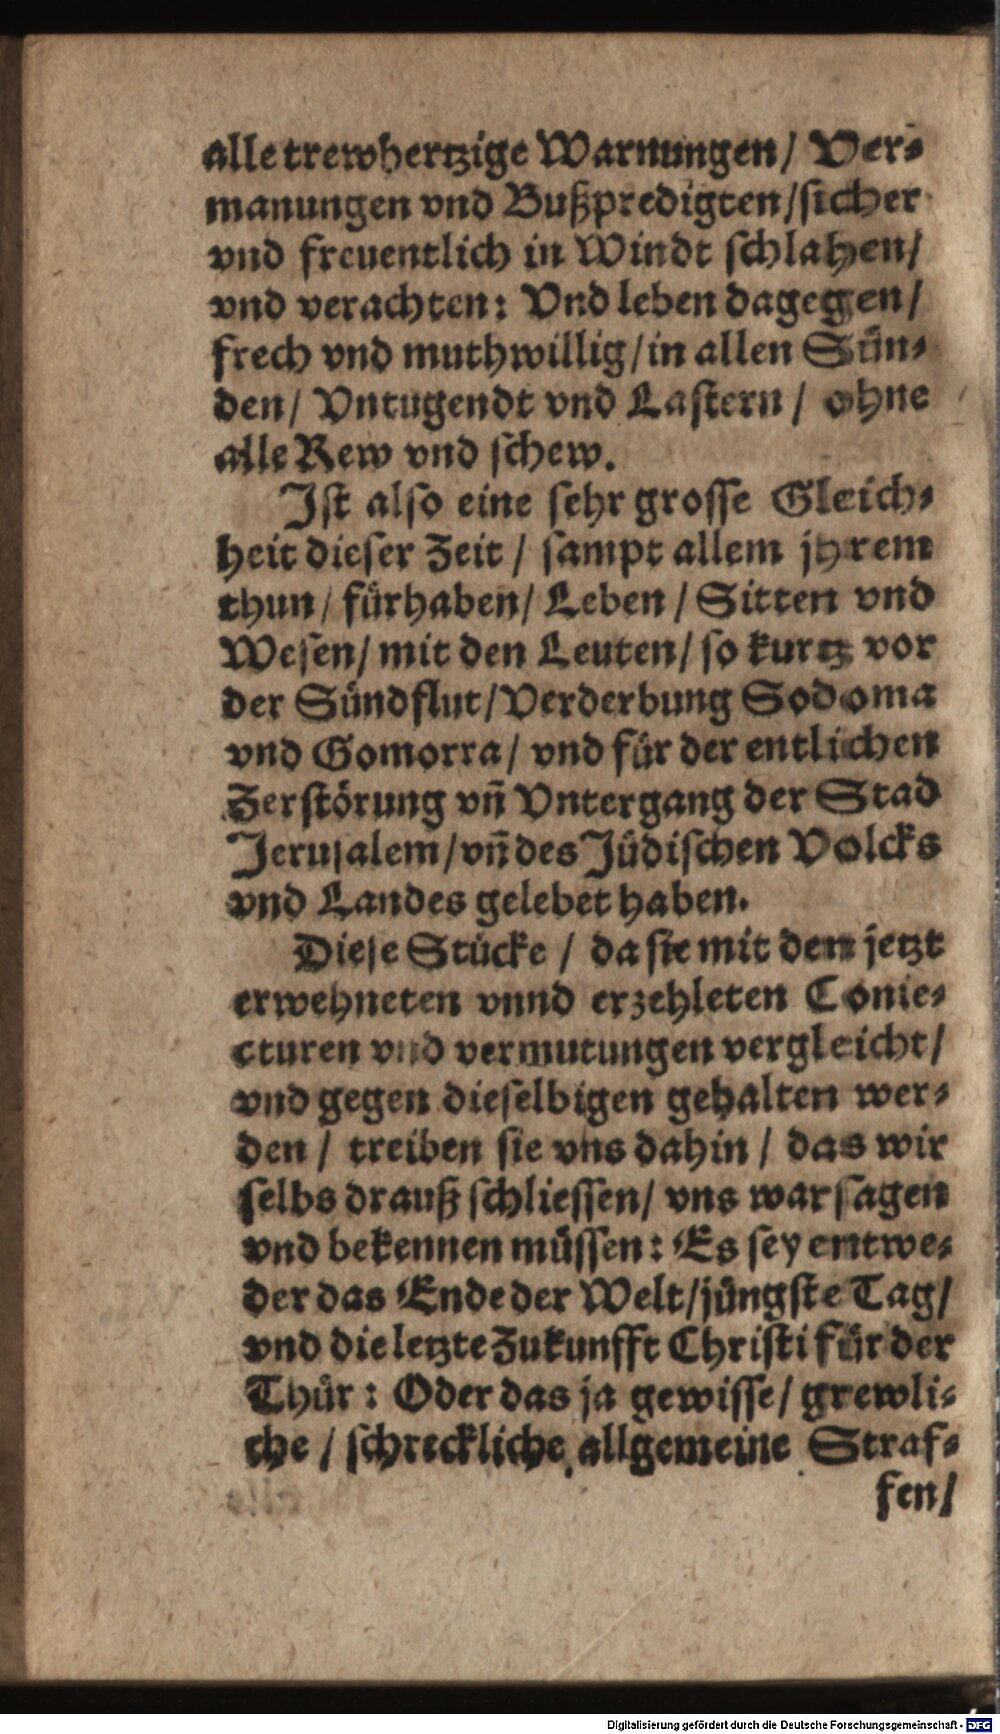 alle trewhertzige Warnungen/ Ver⸗
manungen vnd Bußpredigten/sicher
vnd freuentlich in Windt schlahen/
vnd verachten: Vnd leben dagegen/
frech vnd muthwillig/in allen Sün⸗
den/ Vntugendt vnd Lastern/ ohne
alle Rew vnd schew.
Ist also eine sehr grosse Gleich⸗
heit dieser Zeit/ sampt allem jhrem
thun/ fürhaben/ Leben/ Sitten vnd
Wesen/ mit den Leuten/ so kurtz vor
der Sündflut/Verderbung Sodoma
vnd Gomorra/ vnd für der entlichen
Zerstörung vñ Vntergang der Stad
Jerusalem/vñ des Jüdischen Volcks
vnd Landes gelebet haben.
Diese Stücke/ da sie mit den jetzt
erwehneten vnnd erzehleten Conie⸗
cturen vnd vermutungen vergleicht/
vnd gegen dieselbigen gehalten wer⸗
den/ treiben sie vns dahin/ das wir
selbs drauß schliessen/ vns warsagen
vnd bekennen müssen: Es sey entwe⸗
der das Ende der Welt/jüngste Tag/
vnd die letzte Zukunfft Christi für der
Thür: Oder das ja gewisse/ grewli⸗
che/ schreckliche allgemeine Straf⸗
fen/
Digitalisierung gefördert durch die Deutsche Forschungsgemeinschaft - DFG